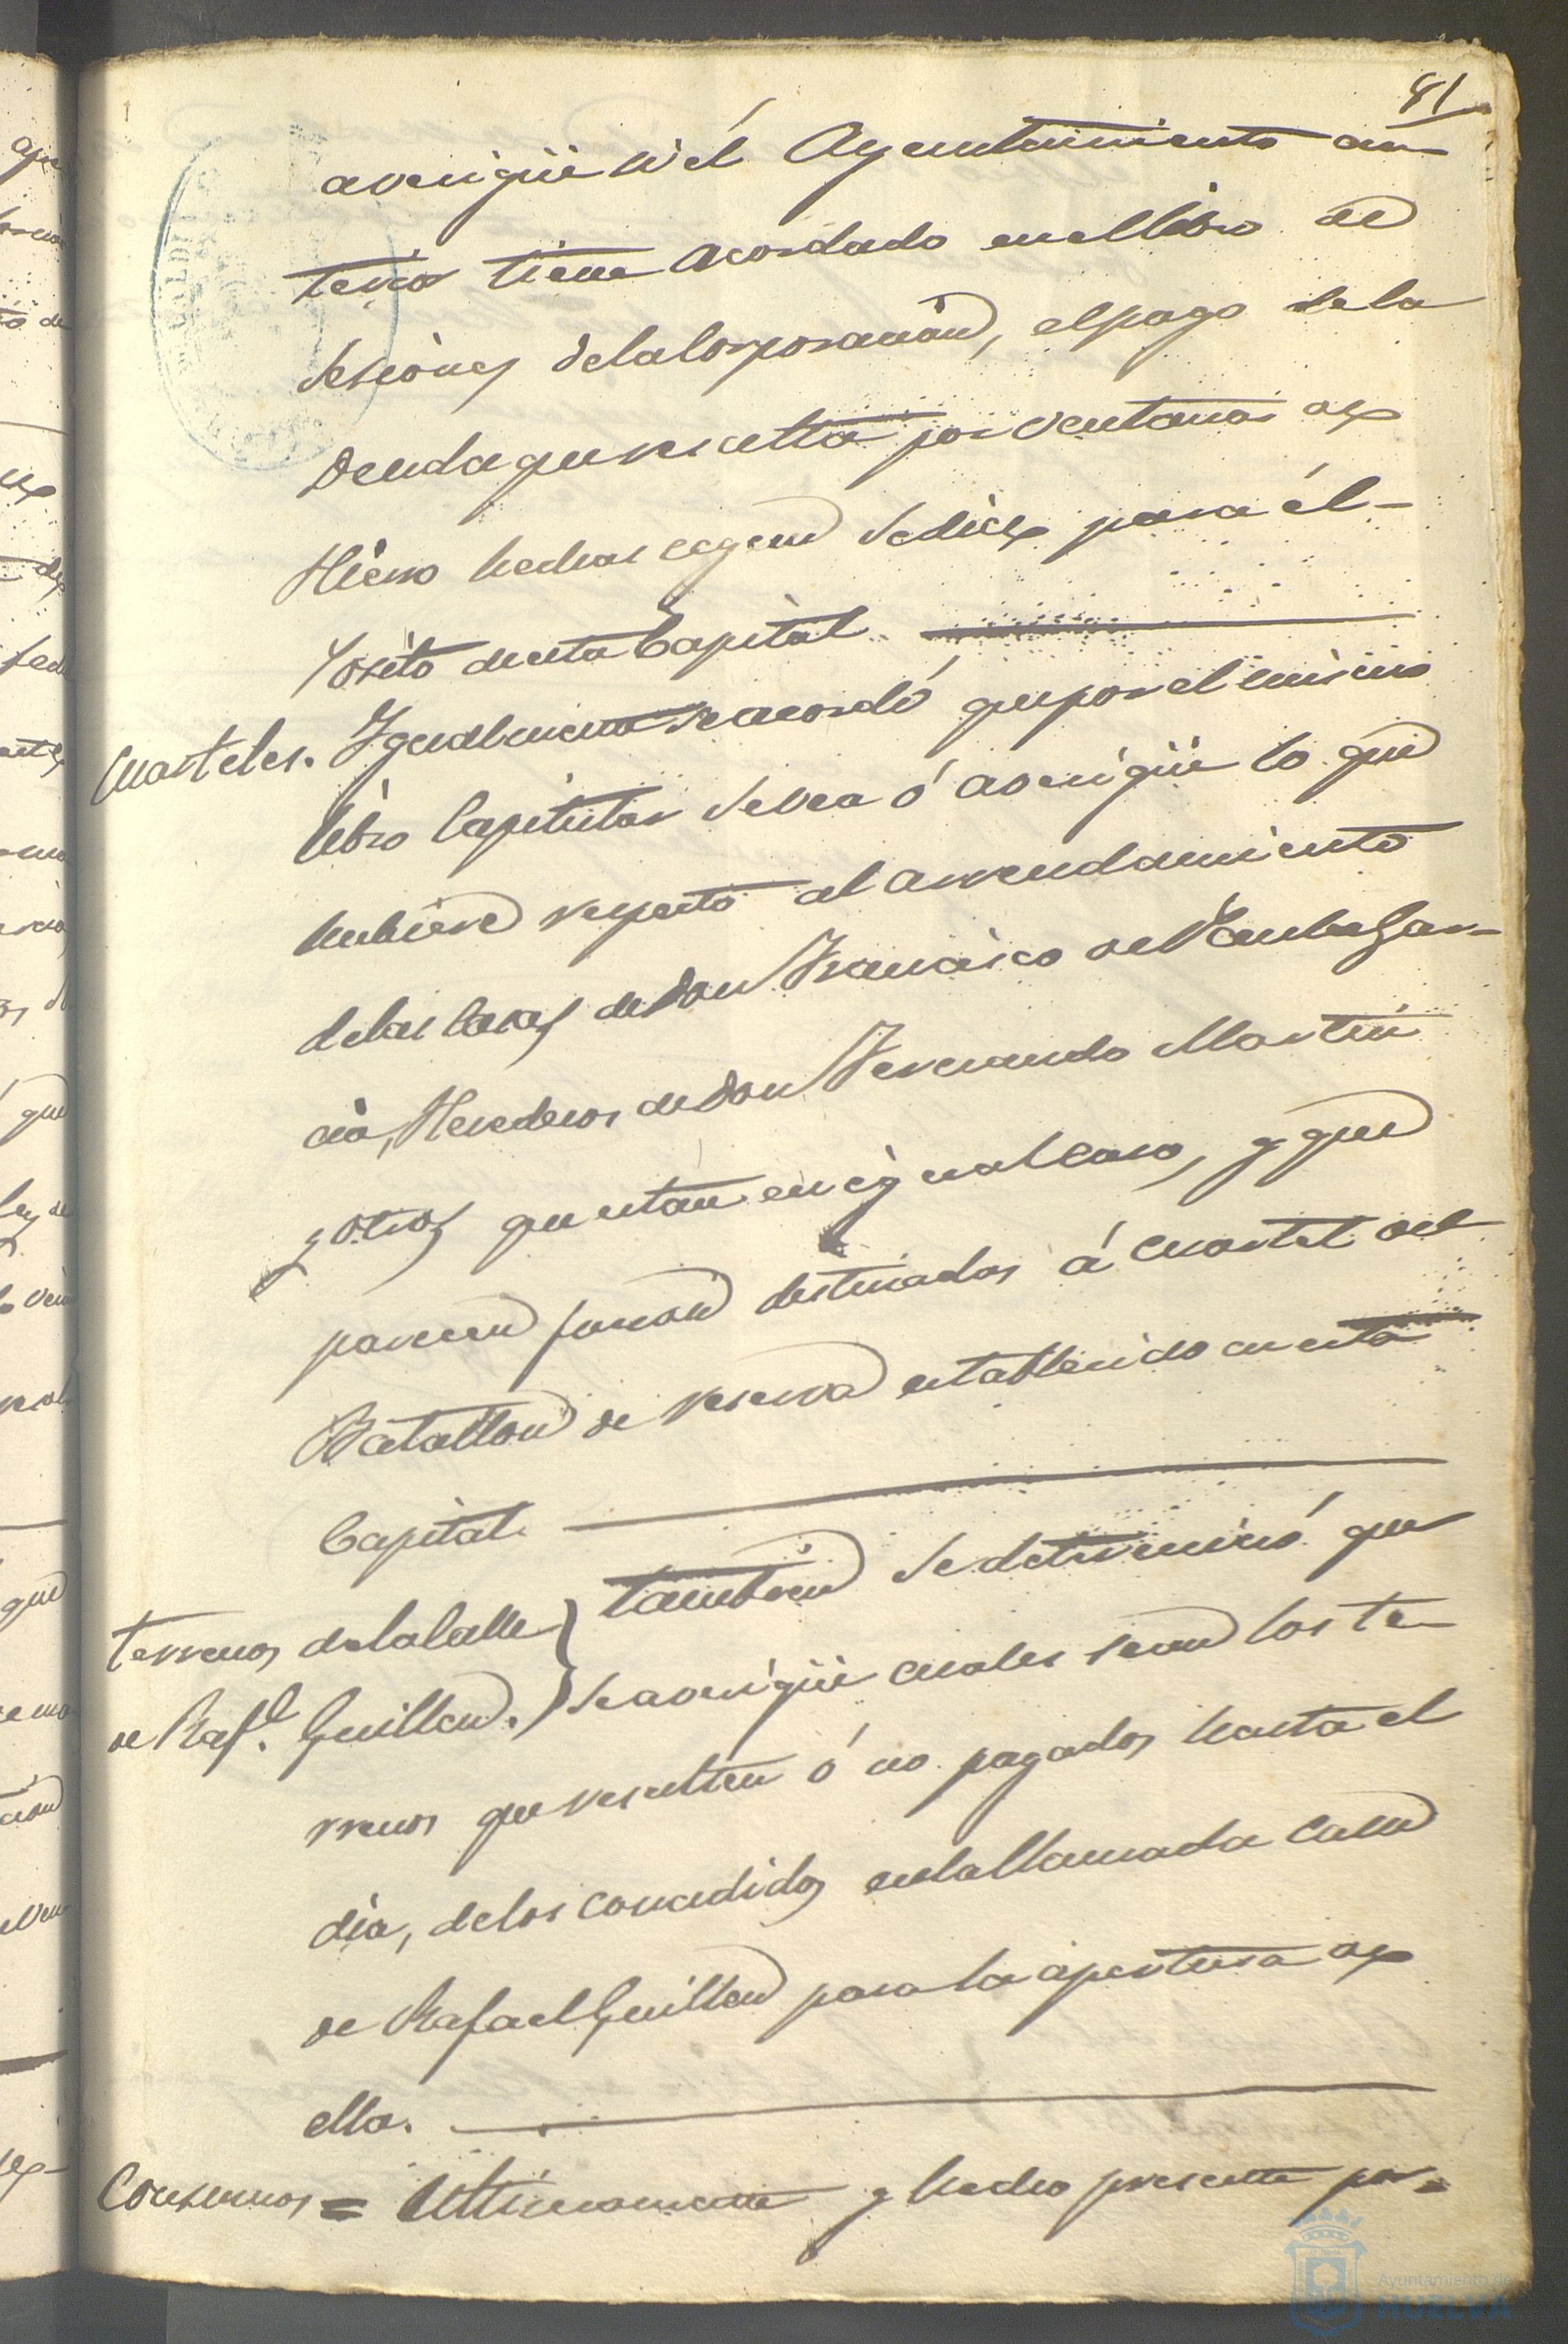 81
averigüe si él Ayuntamiento an-
terior tiene acordado en el libro de
Sesiones dela Corporación, el pago de la
Deuda que resulta por ventanas de
Hierro hechas segun se dice para él-
Posito de esta Capital.
Cuarteles. Igualmente se acordó que por el mismo
libro Capitular se vea ó averigüe lo que
hubiere respecto al arrendamiento
delas Casas de Don Francisco de Paula Gar-
cia, Herederos de Don Fernando Martin
y otros que estan en igual caso, y que
parecen fueron destinados á Cuartel del
Batallon de reserva establecido en esta
Capital.
Terrenos dela Calle
de Raf.l Guillen.
tambien se determinó que
se averigüe cuales sean los te-
rrenos que resulten ó no pagados hasta el
dia, delos concedidos en la llamada Calle
de Rafael Guillen para la apertura de
ella.
Consumos = Ultimamente y hecho presente por=
Ayuntamiento de
HUELVA